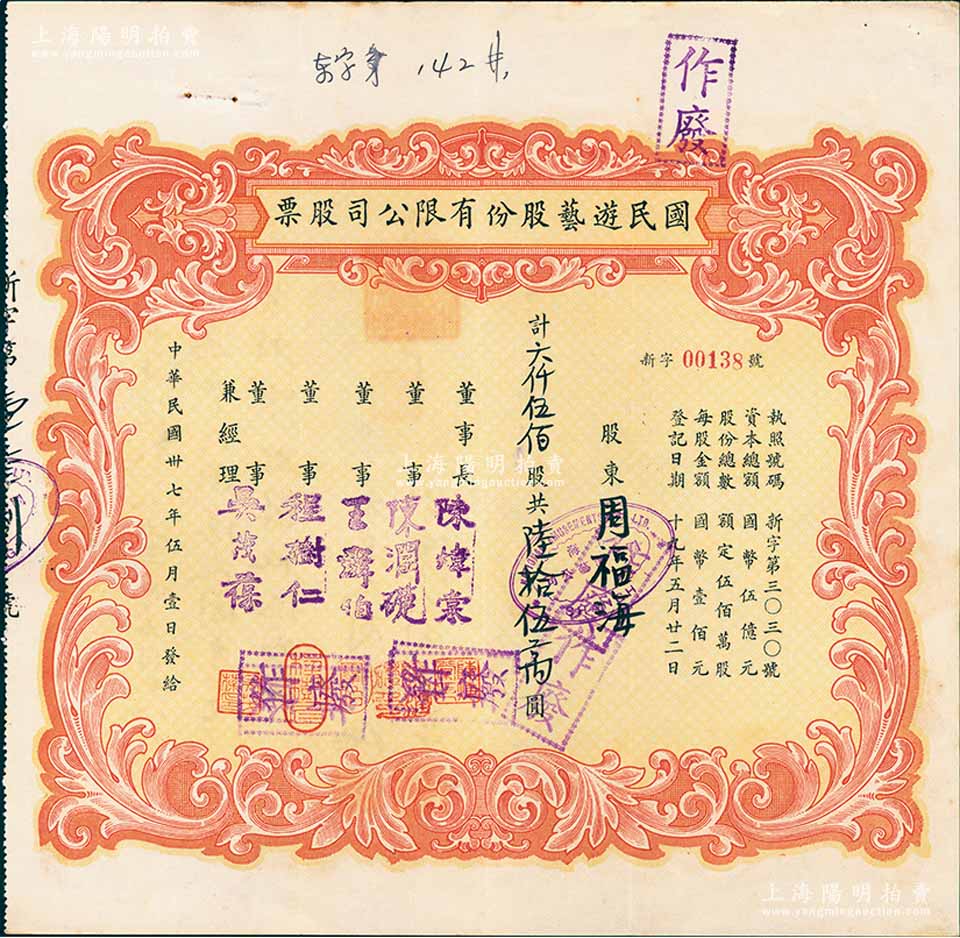 上海陽明拍賣
www.yangmingauction.com
142
作廢
國民遊藝股份有限公司股票
新字 00138 號
執照號碼 新字第三〇三三〇號
資本總額 國幣伍億元
股份總數 額定伍佰萬股
每股金額 國幣壹佰元
登記日期 十九年五月廿二日
股東 周福海
計六仟伍佰股共陸拾伍萬圓
董事長 陳煒棠
董事 陳潤硯
董事
董事 程樹仁
董事兼經理 吳茂葆
中華民國卅七年伍月壹日發給
作廢
作廢
作廢
上海陽明拍賣
www.yangmingauction.com
上海陽明拍賣
www.yangmingauction.com